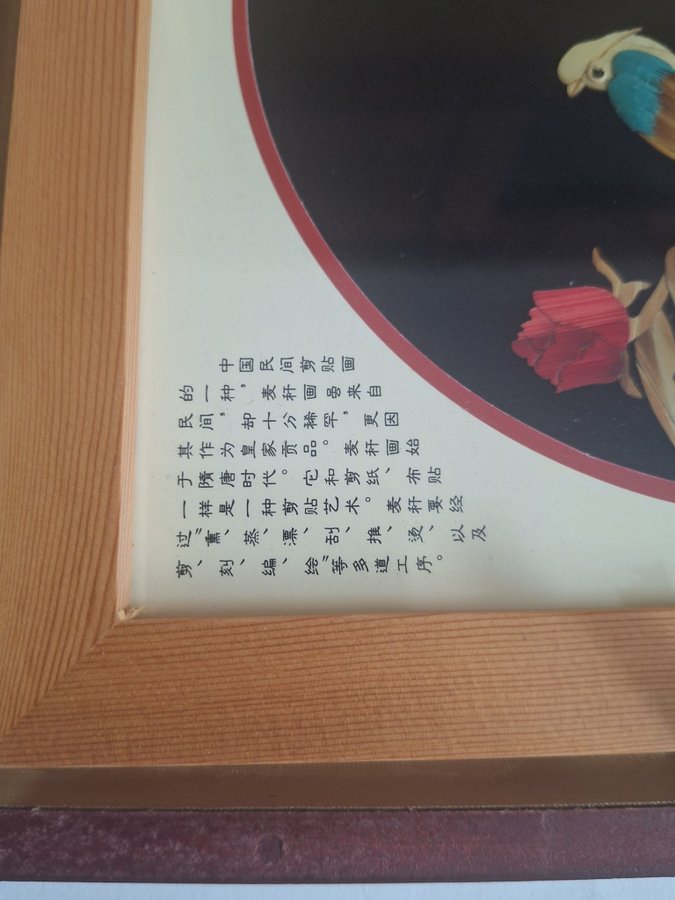 中国民间剪贴画
的一种，麦秆画虽来自
民间，却十分稀罕，更因
其作为皇家贡品。麦秆画始
于隋唐时代。它和剪纸、布贴
一样是一种剪贴艺术。麦秆要经
过“熏、蒸、漂、刮、推、烫、以及
剪、刻、编、绘”等多道工序。